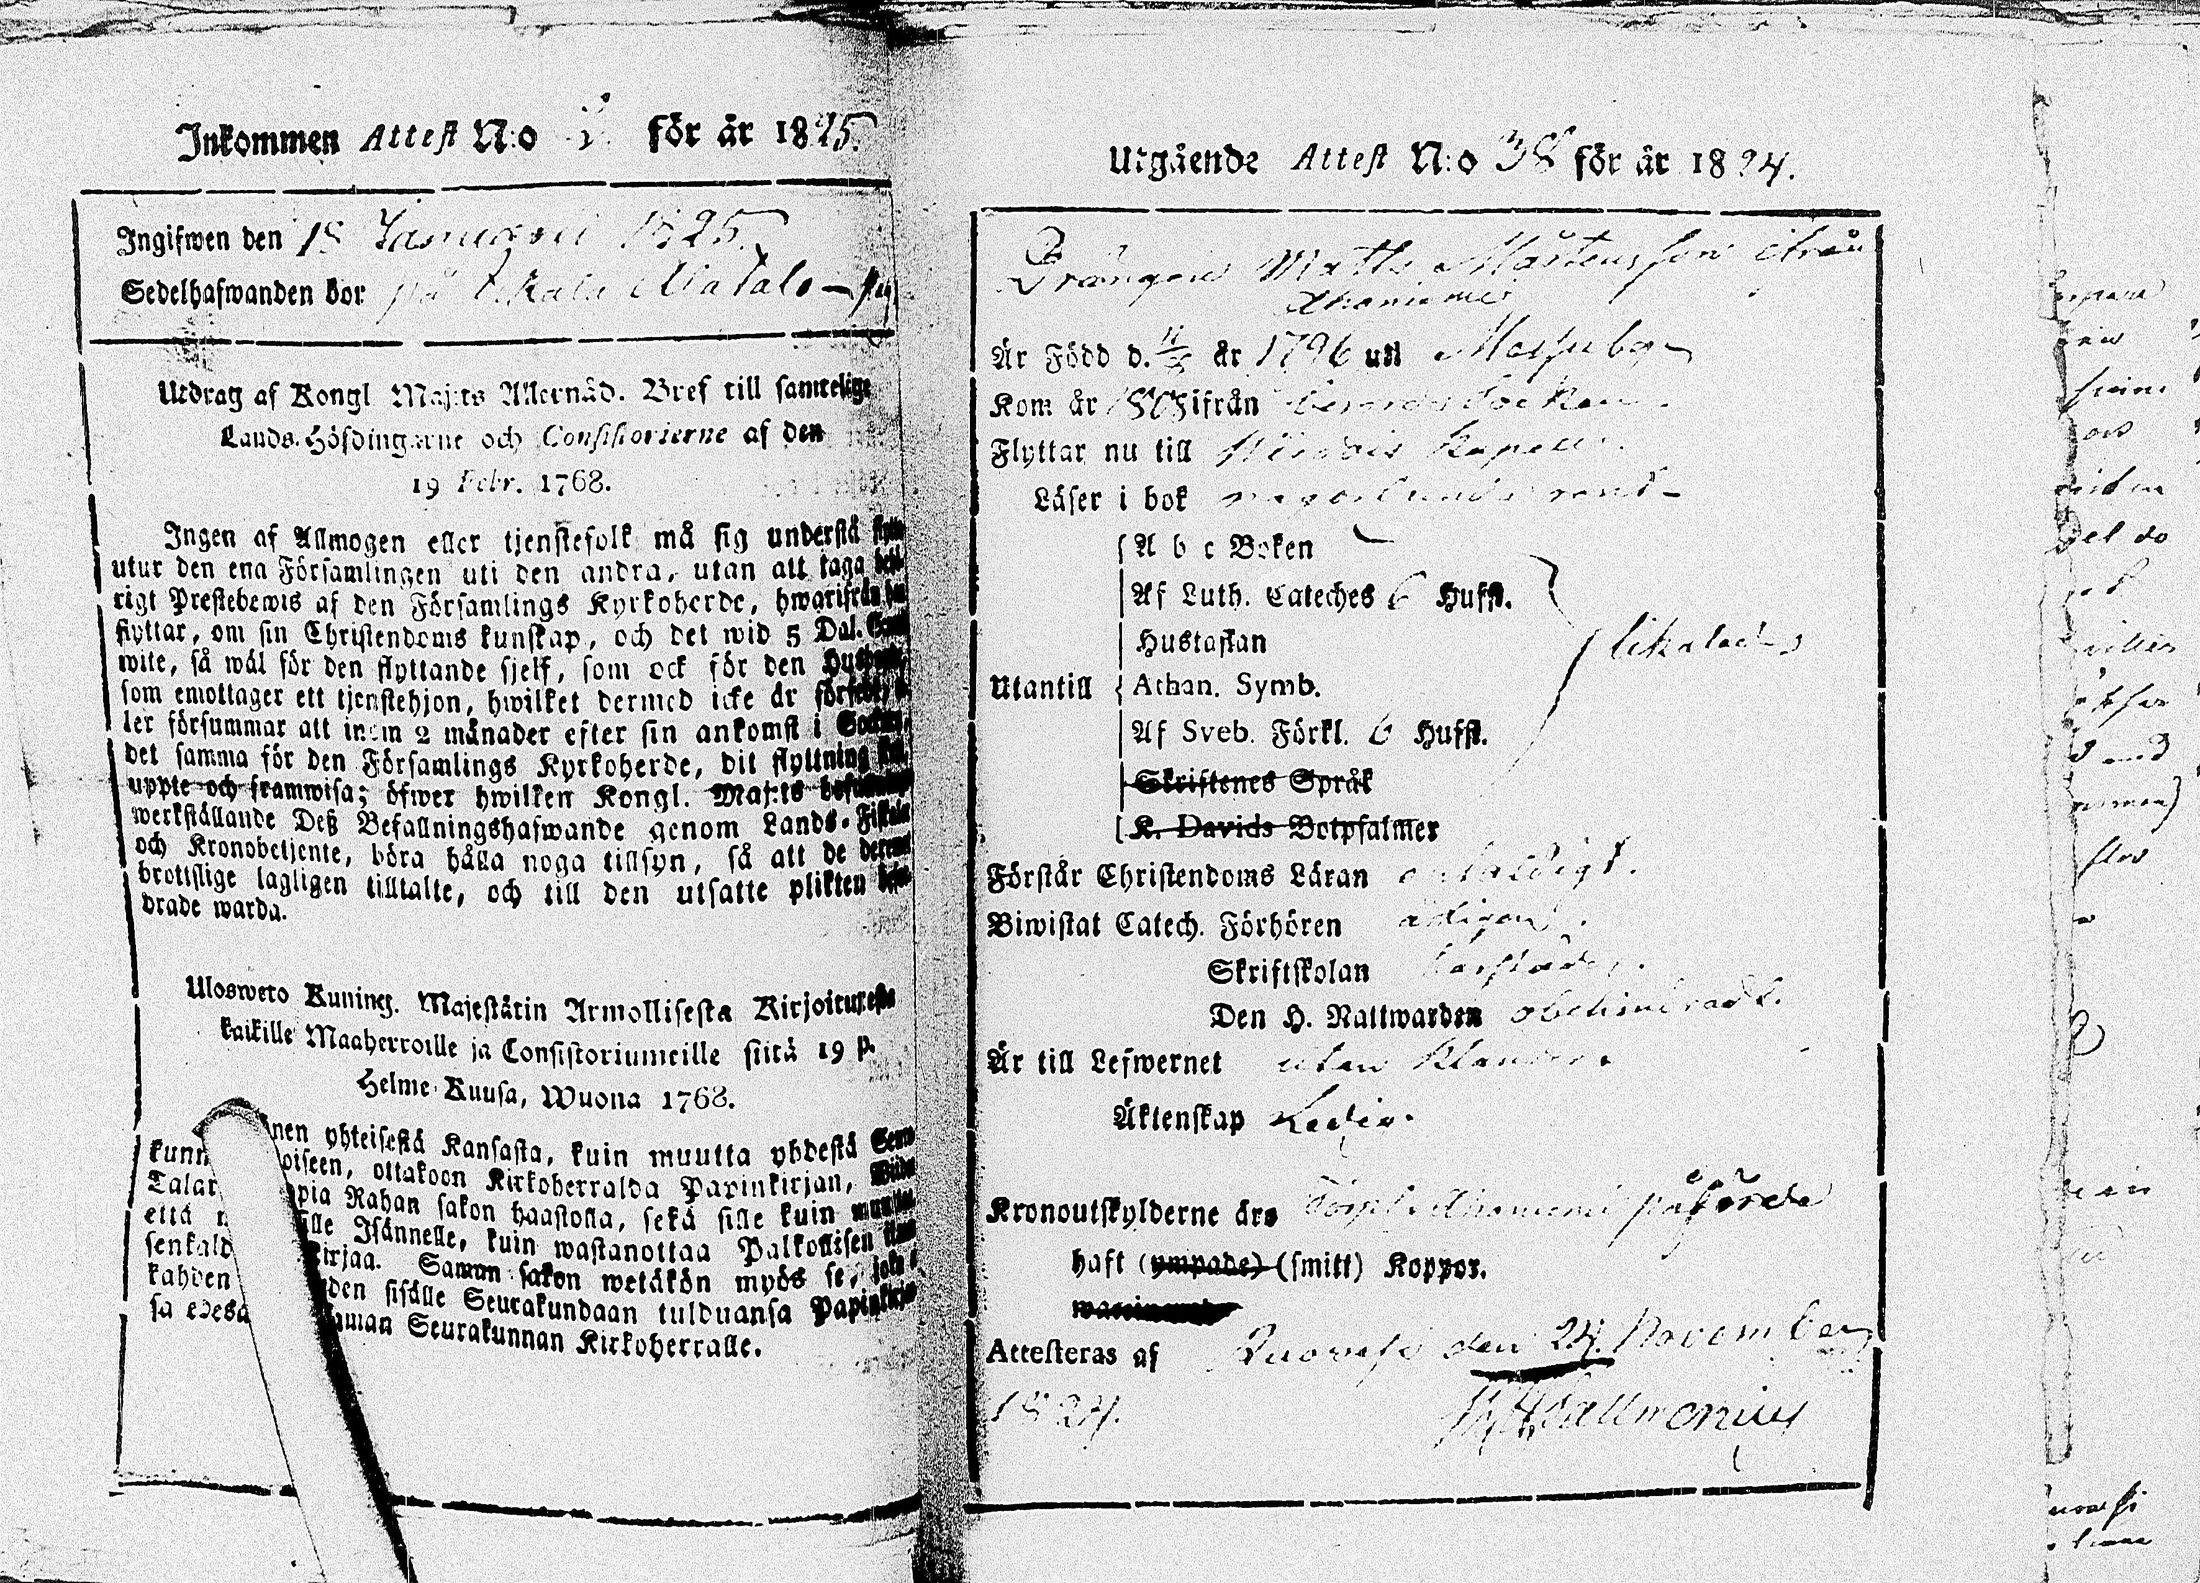 Inkommen Attest N:o 2. för år 1825.
Ingifwen den 18 Januarii 1825.
Sedelhafwanden bor på
Utdrag af Kongl Maj:ts Allernåd. Bref till samtelige
Lands-Höfdingarne och Consistorierne af den
19 Febr. 1768.
Ingen af Allmogen eller tjenstefolk må sig understå flytta
utur den ena Församlingen uti den andra, utan att taga
rigt Prestebewis af den Församlings Kyrkoherde, hwarifrån
flyttar, om sin Christendoms kunskap, och det wid 5 Dal.
wite, så wäl för den flyttande sjelf, som ock för den
som emottager ett tjenstehjon, hwilket dermed icke är
ler försummar att inom 2 månader efter sin ankomst i
det samma för den Församlings Kyrkoherde, dit flyttning
uppte och framwisa; öfwer hwilken Kongl. Maj:ts
werkställande Deß Befallningshafwande genom Lands-
och Kronobetjente, böra hålla noga tillsyn, så att de
brottslige lagligen tilltalte, och till den utsatte plikten
drade warda.
Ulosweto Kuning. Majestätin Armollisesta Kirjoituxesta
kaikille Maaherroille ja Consistoriumeille siitä 19 p.
Helme-Kuusa, Wuona 1768.
nen yhteisestä Kansasta, kuin muutta yhdestä
kunn oiseen, ottakoon Kirkoherralda Papinkirjan,
Talar pia Rahan sakon haastolla, sekä sille kuin
että ille Isännelle, kuin wastanottaa Palkollisen
senkald irjaa. Saman sakon wetäkön myös se, joka
kahden den sisälle Seurakundaan tulduansa Papinkirjan
sa edesä aman Seurakunnan Kirkoherralle.
Utgående Attest N:o 38 för år 1824.
Drängen Matts Mårtensson ifrån
Är Född d. år 1796 uti
Kom år 1808 ifrån Socken
Flyttar nu till Kapell
Läser i bok någorlunda rent
A b c Boken
Af Luth. Cateches 6 Hufst.
Hustaflan
Utantill Athan. Symb. likaledes
Af Sveb. Förkl. 6 Hufst.
Skriftenes Språk
K. Davids Botpsalmer
Förstår Christendoms Läran enfaldigt.
Biwistat Catech. Förhören årligen.
Skriftskolan
Den H. Nattwarden obehindradt.
Är till Lefwernet utan klander.
Äktenskap Ledig.
Kronoutskylderne äro påförde
haft (ympade) (smitt) Koppor.
Attesteras af Ruowesi den 24. November
1824.